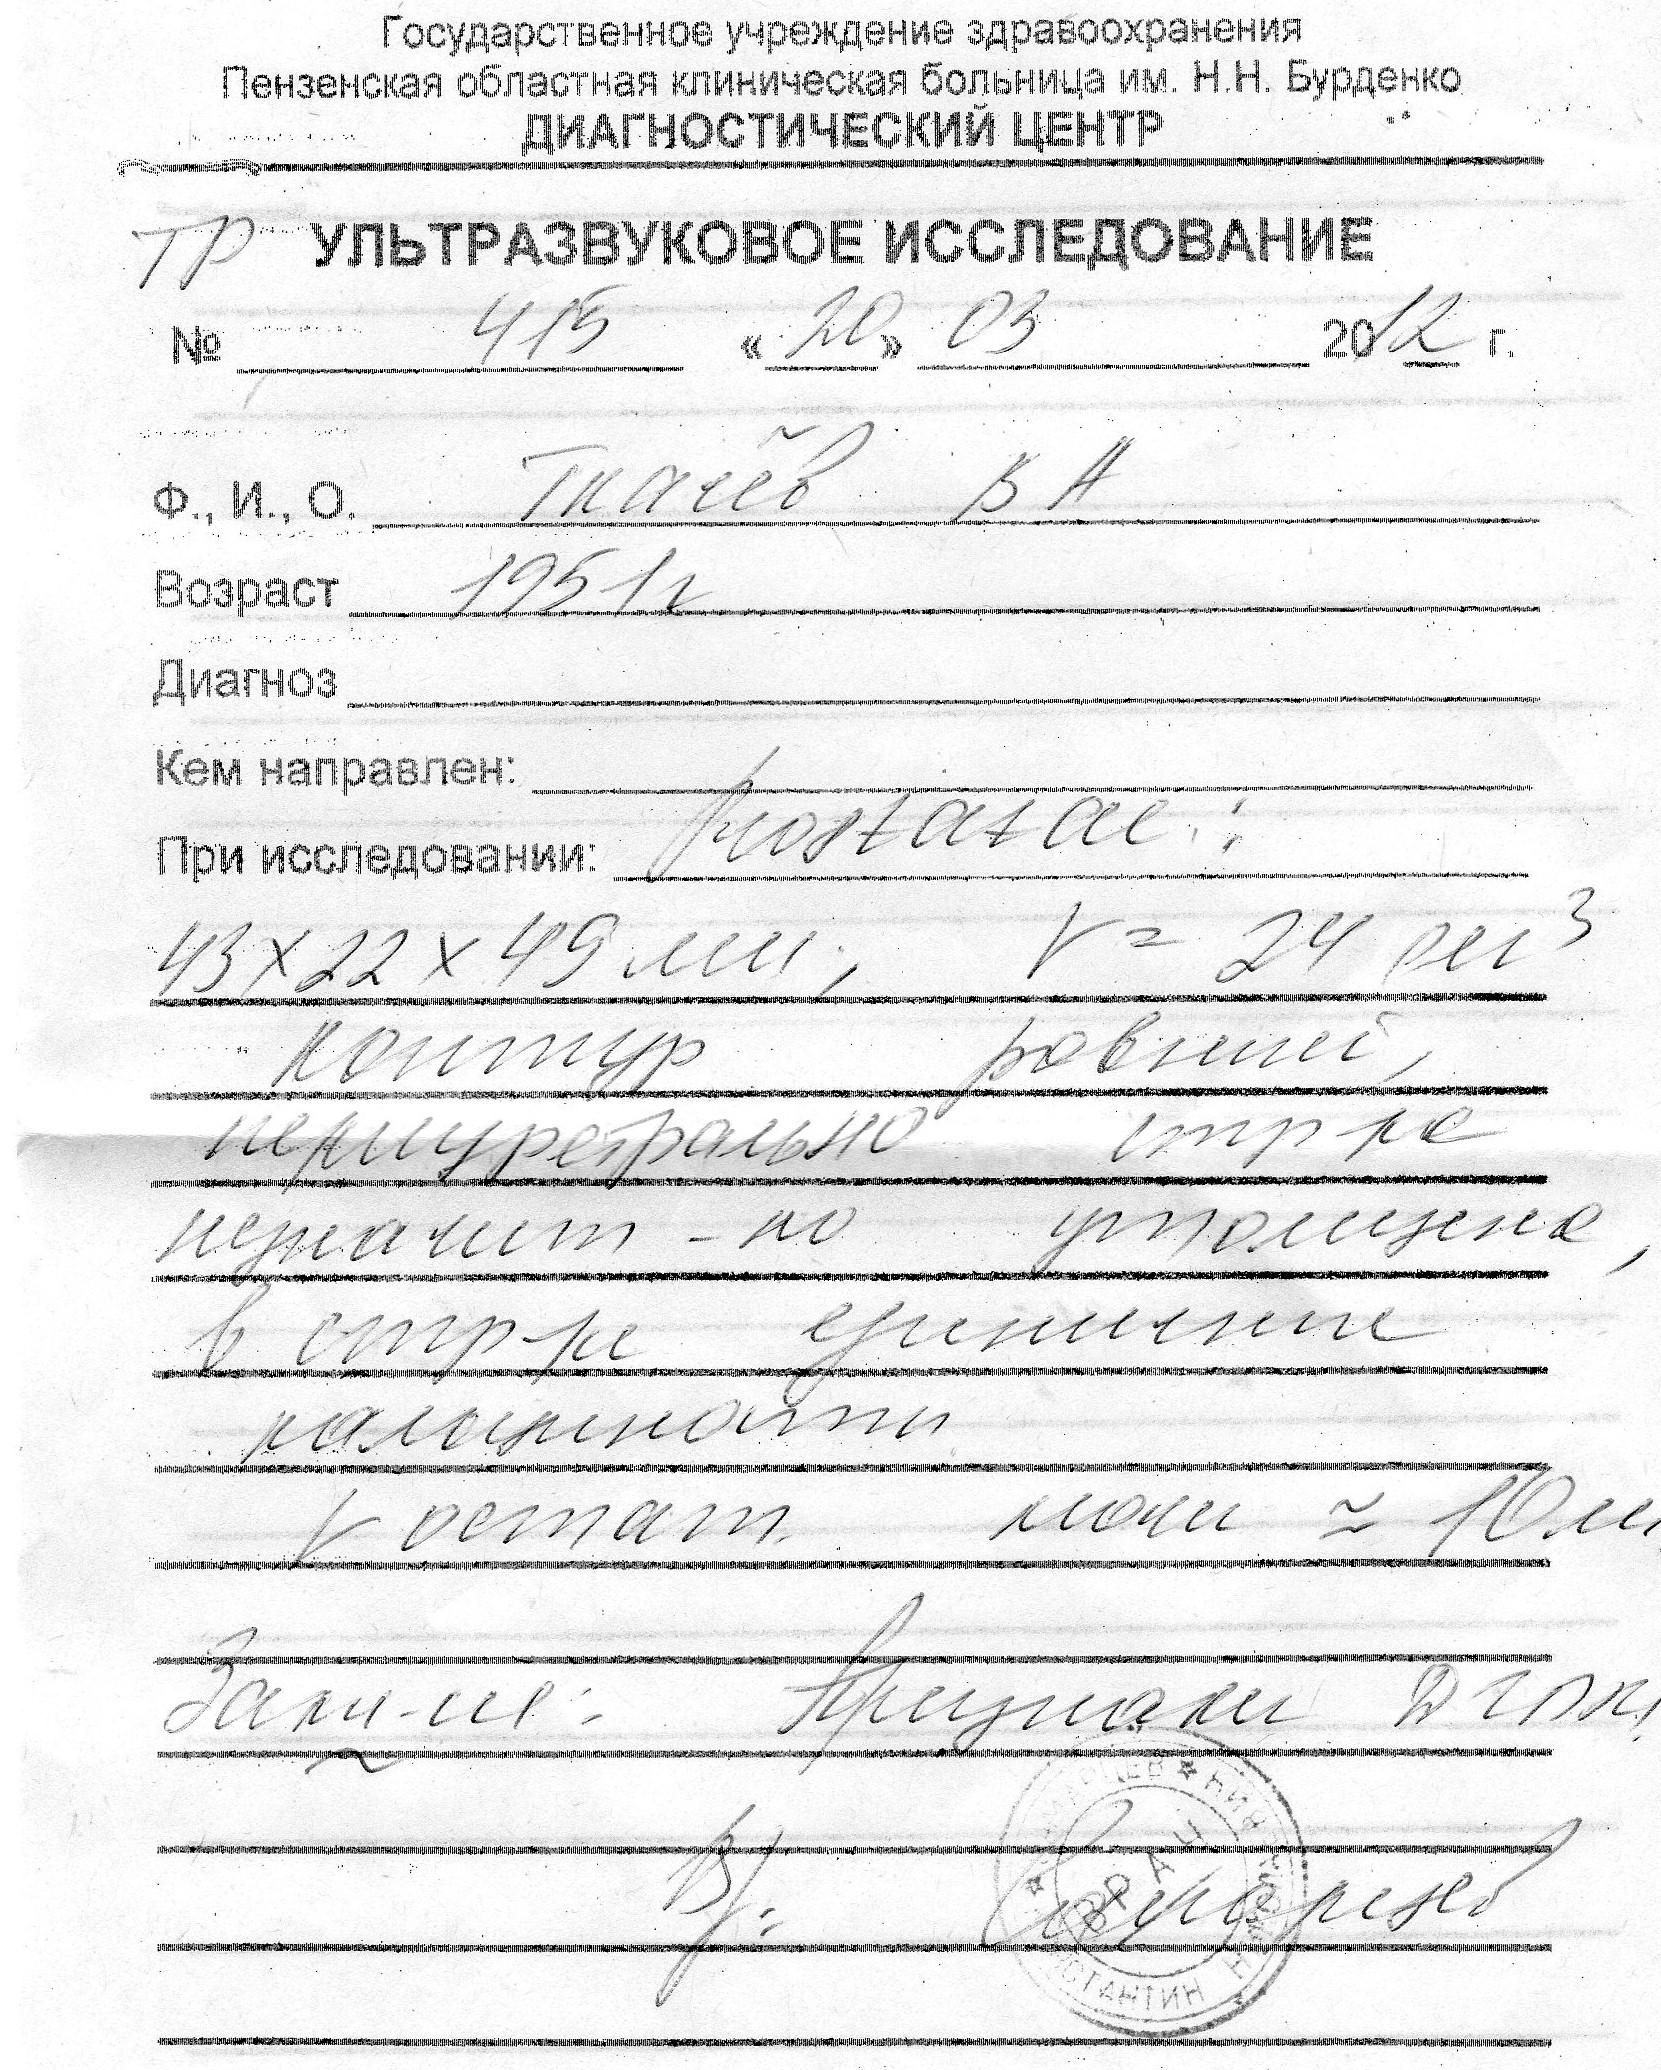 Государственное учреждение здравоохранения
Пензенская областная клиническая больница им. Н.Н. Бурденко
ДИАГНОСТИЧЕСКИЙ ЦЕНТР
ТР УЛЬТРАЗВУКОВОЕ ИССЛЕДОВАНИЕ
№ 415 «20» 03 2012 г.
Ф., И., О. Ткачёв В А
Возраст 1951г
Диагноз
Кем направлен:
При исследовании: prostatae:
43х22х49 мм, V = 24 см³
Контур ровный,
периуретрально стр-ра
незначит-но утолщена,
в стр-ре единичные
кальцинаты
V остат. мочи ≈ 10 мл
Закл-ие: Признаки ДГПЖ
Вр:
ВРАЧ